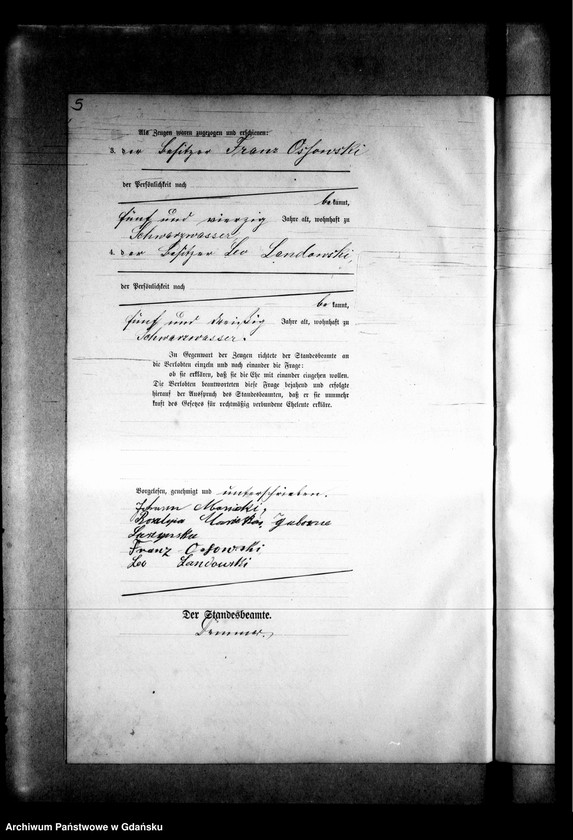 5
Als Zeugen waren zugezogen und erschienen:
3. der Besitzer Franz Ossowski
der Persönlichkeit nach
bekannt,
fünf und vierzig Jahre alt, wohnhaft zu
Schwarzwasser,
4. der Besitzer Leo Landowski,
der Persönlichkeit nach
bekannt,
fünf und dreißig Jahre alt, wohnhaft zu
Schwarzwasser.
In Gegenwart der Zeugen richtete der Standesbeamte an
die Verlobten einzeln und nach einander die Frage:
ob sie erklären, daß sie die Ehe mit einander eingehen wollen.
Die Verlobten beantworteten diese Frage bejahend und erfolgte
hierauf der Ausspruch des Standesbeamten, daß er sie nunmehr
kraft des Gesetzes für rechtmäßig verbundene Eheleute erkläre.
Vorgelesen, genehmigt und unterschrieben.
Johann
Franz Ossowski
Leo Landowski
Der Standesbeamte.
Archiwum Państwowe w Gdańsku